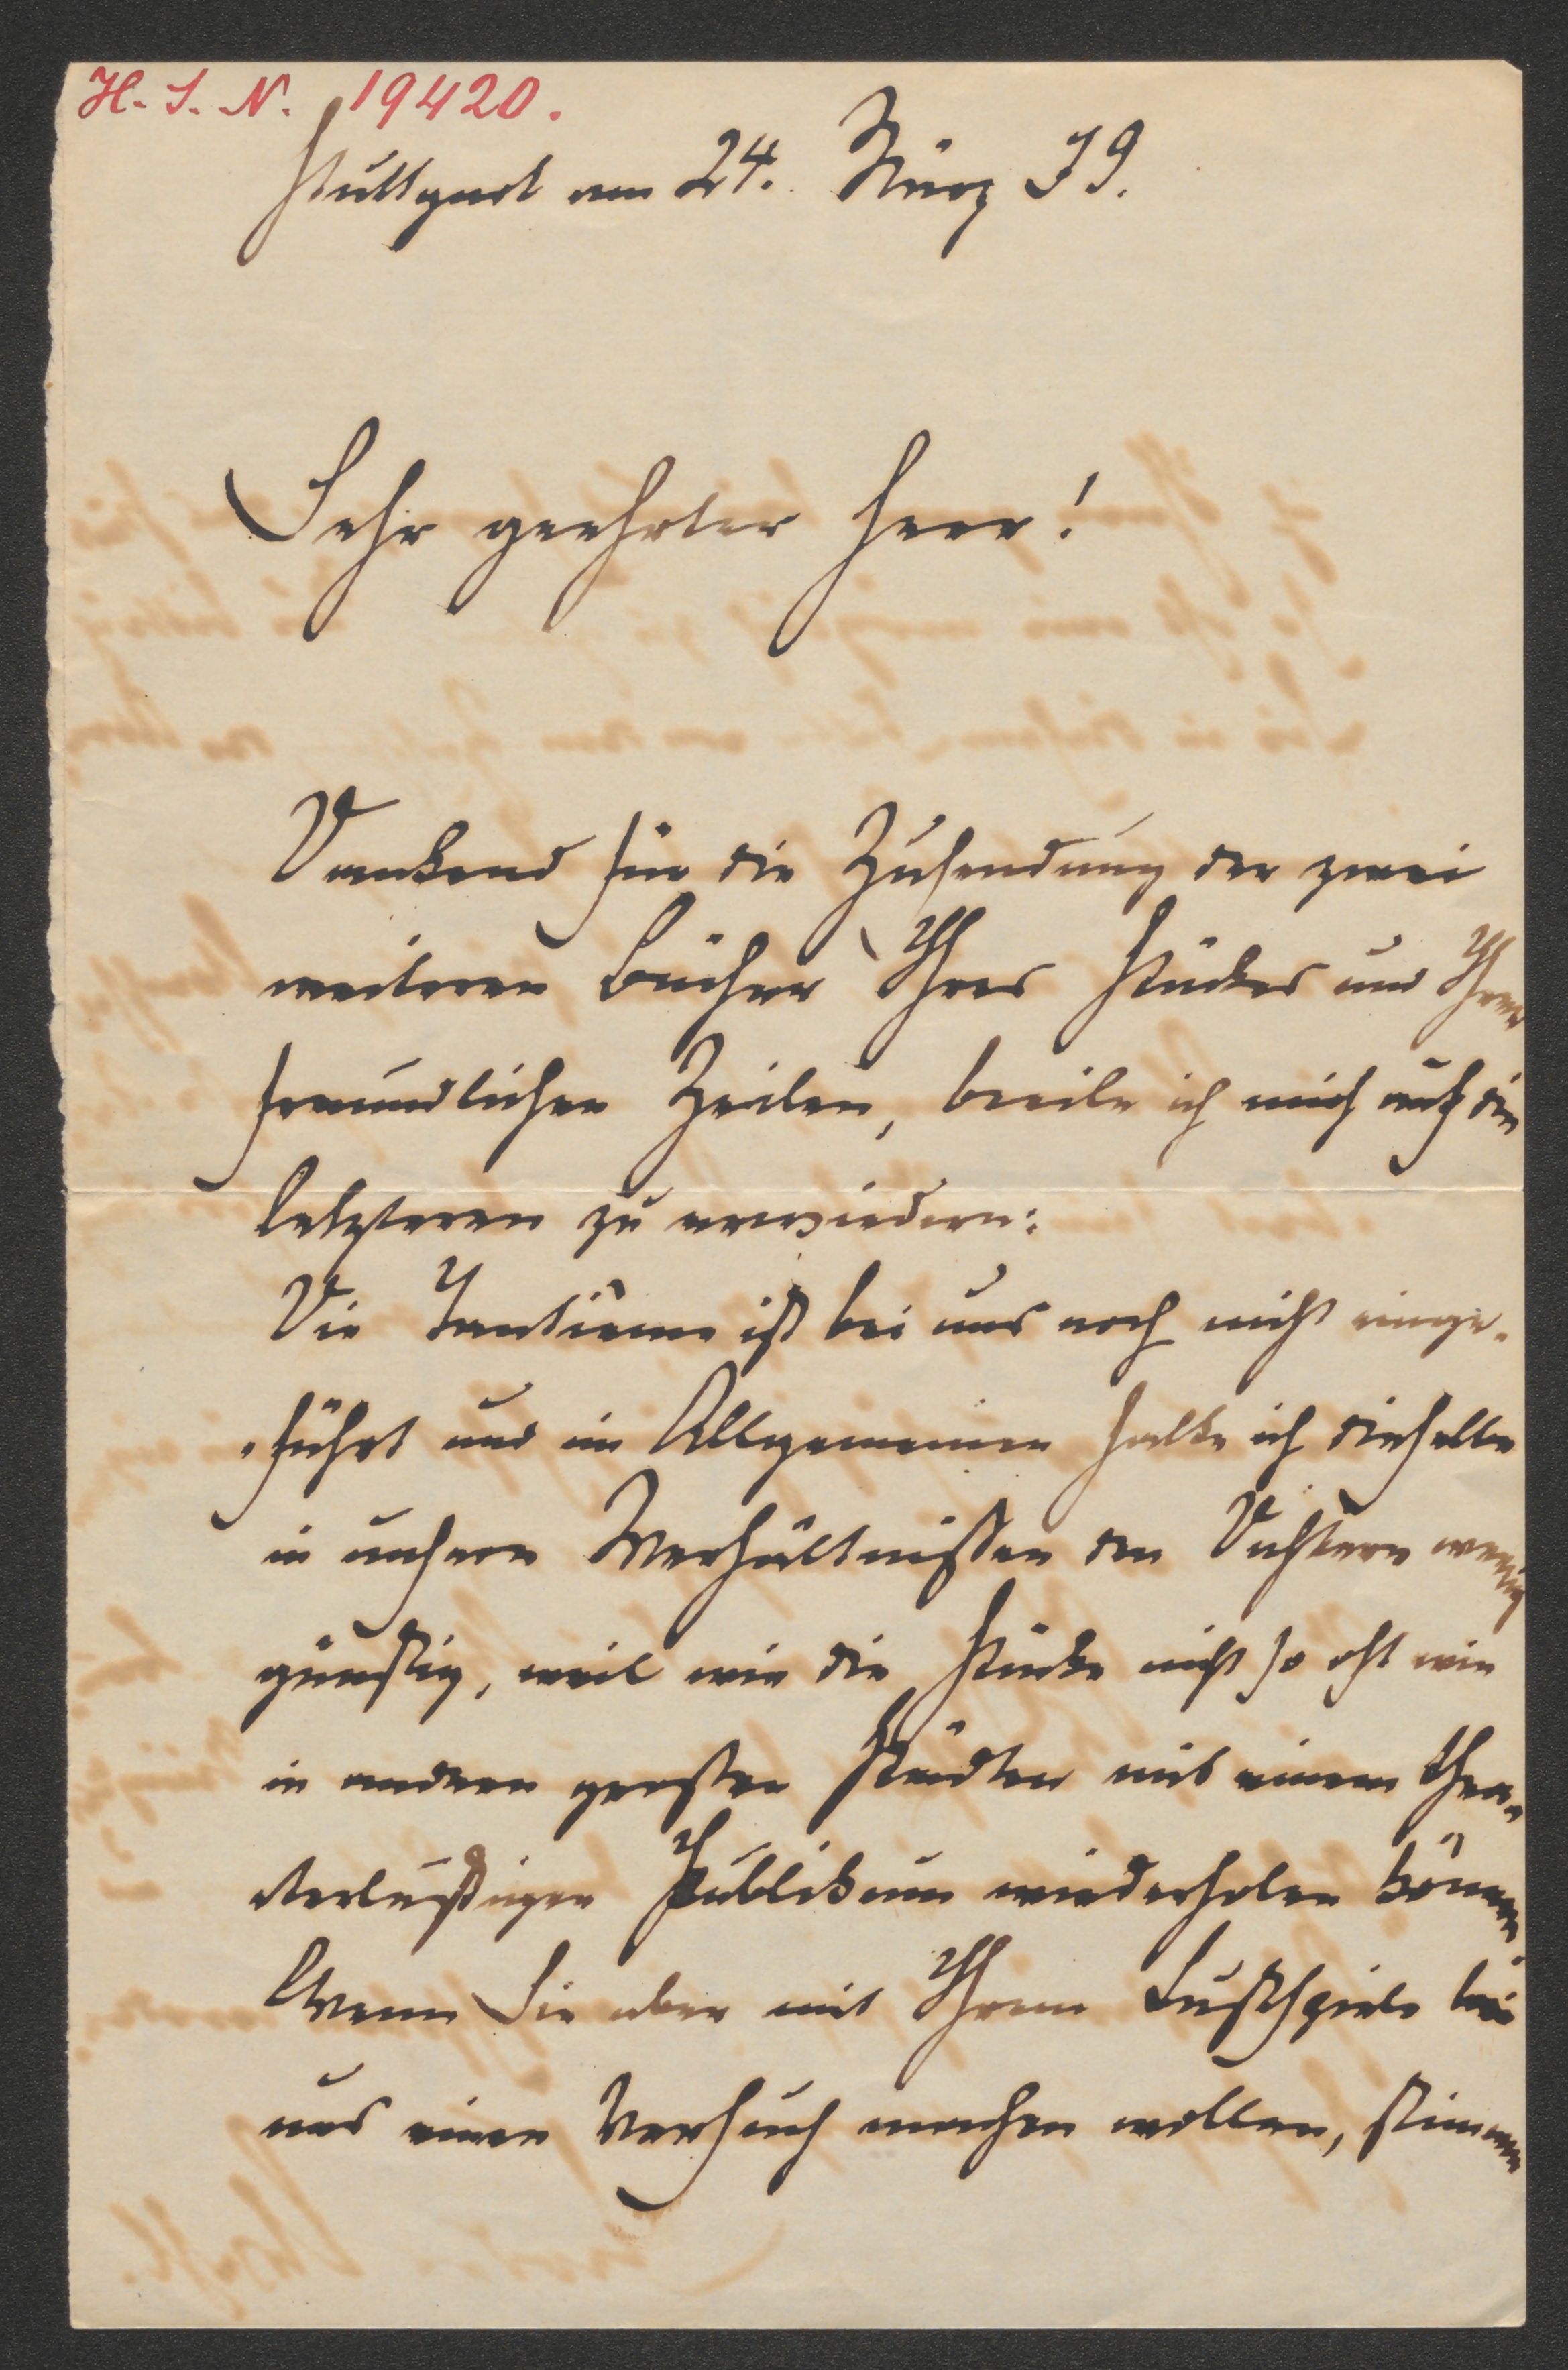 H. I. N. 19420.
Stuttgart am 24. März 79.
Sehr geehrter Herr!
Dankend für die Zusendung der zwei
weiteren Bücher Ihres Stückes und Ihrer
freundlichen Zeilen, beeile ich mich auf die
letzteren zu erwiedern:
Die Tantieme ist bei uns noch nicht einge-
-führt und im Allgemeinen halte ich dieselbe
in unsern Verhältnissen den Dichtern wenig
günstig, weil wir die Stücke nicht so oft wie
in andern grossen Städten mit einem thea-
terlustigen Publikum wiederholen können.
Wenn Sie aber mit Ihrem Lustspiele bei
uns einen Versuch machen wollen, stimmen